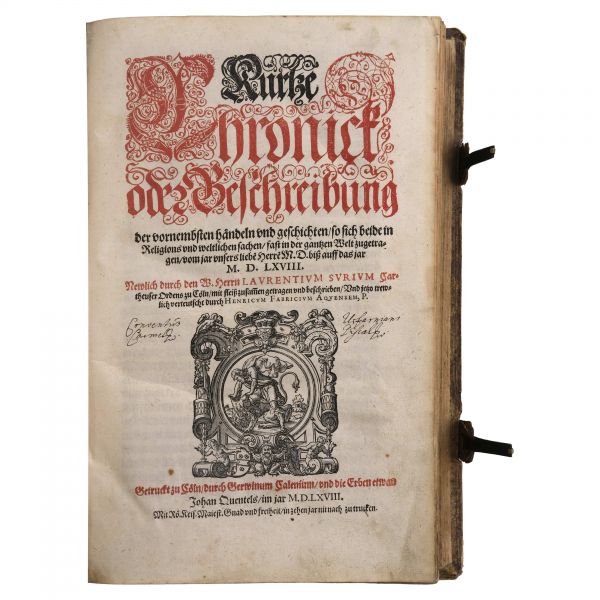 Kurtze
Chronick
oder Beschreibung
der vornembsten händeln vnd geschichten/ so sich beide in
Religions vnd weltlichen sachen/ fast in der gantzen Welt zugetra-
gen/ vom jar vnsers liebē Herrē M.D. biß auff das jar
M. D. LXVIII.
Newlich durch den W. Herrn LAVRENTIVM SVRIVM Car-
theuser Ordens zu Cöln/ mit fleiß zusamen getragen vnd beschrieben/ Vnd jetzo trew-
lich verteutscht durch HENRICVM FABRICIVM AQVENSEM, P.
Conventus
Getruckt zu Cöln/ durch Gerwinum Calenium/ vnd die Erben etwan
Johan Quentels/ im jar M.D.LXVIII.
Mit Rö. Keis. Maiest. Gnad vnd freiheit/ in zehen jar nit nach zu trucken.